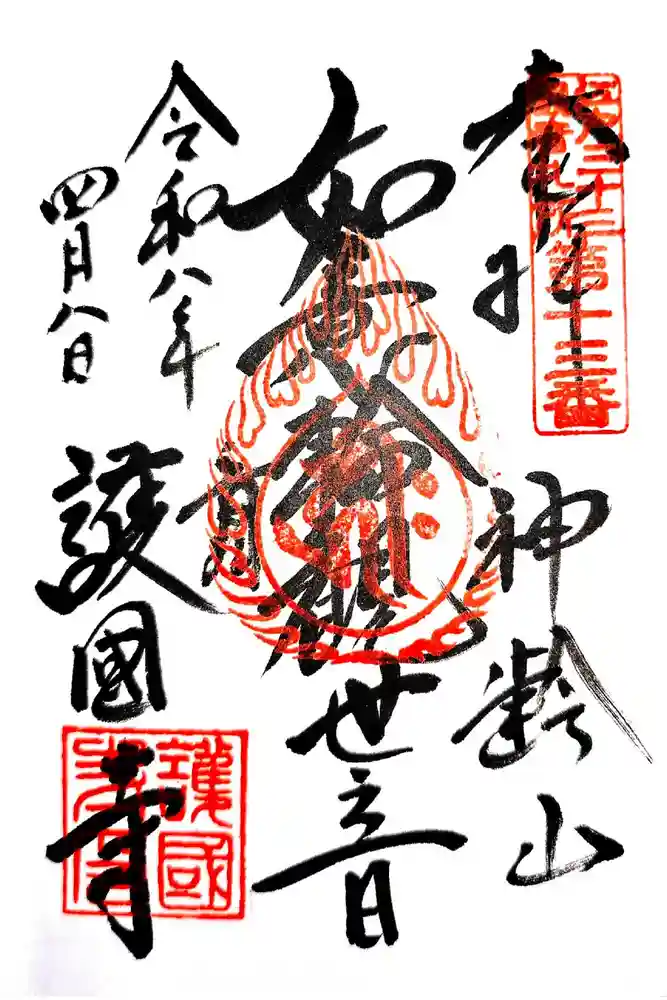 奉拝
第十三番
神齢山
如意輪觀世音
令和八年
四月八日
護國寺
護國